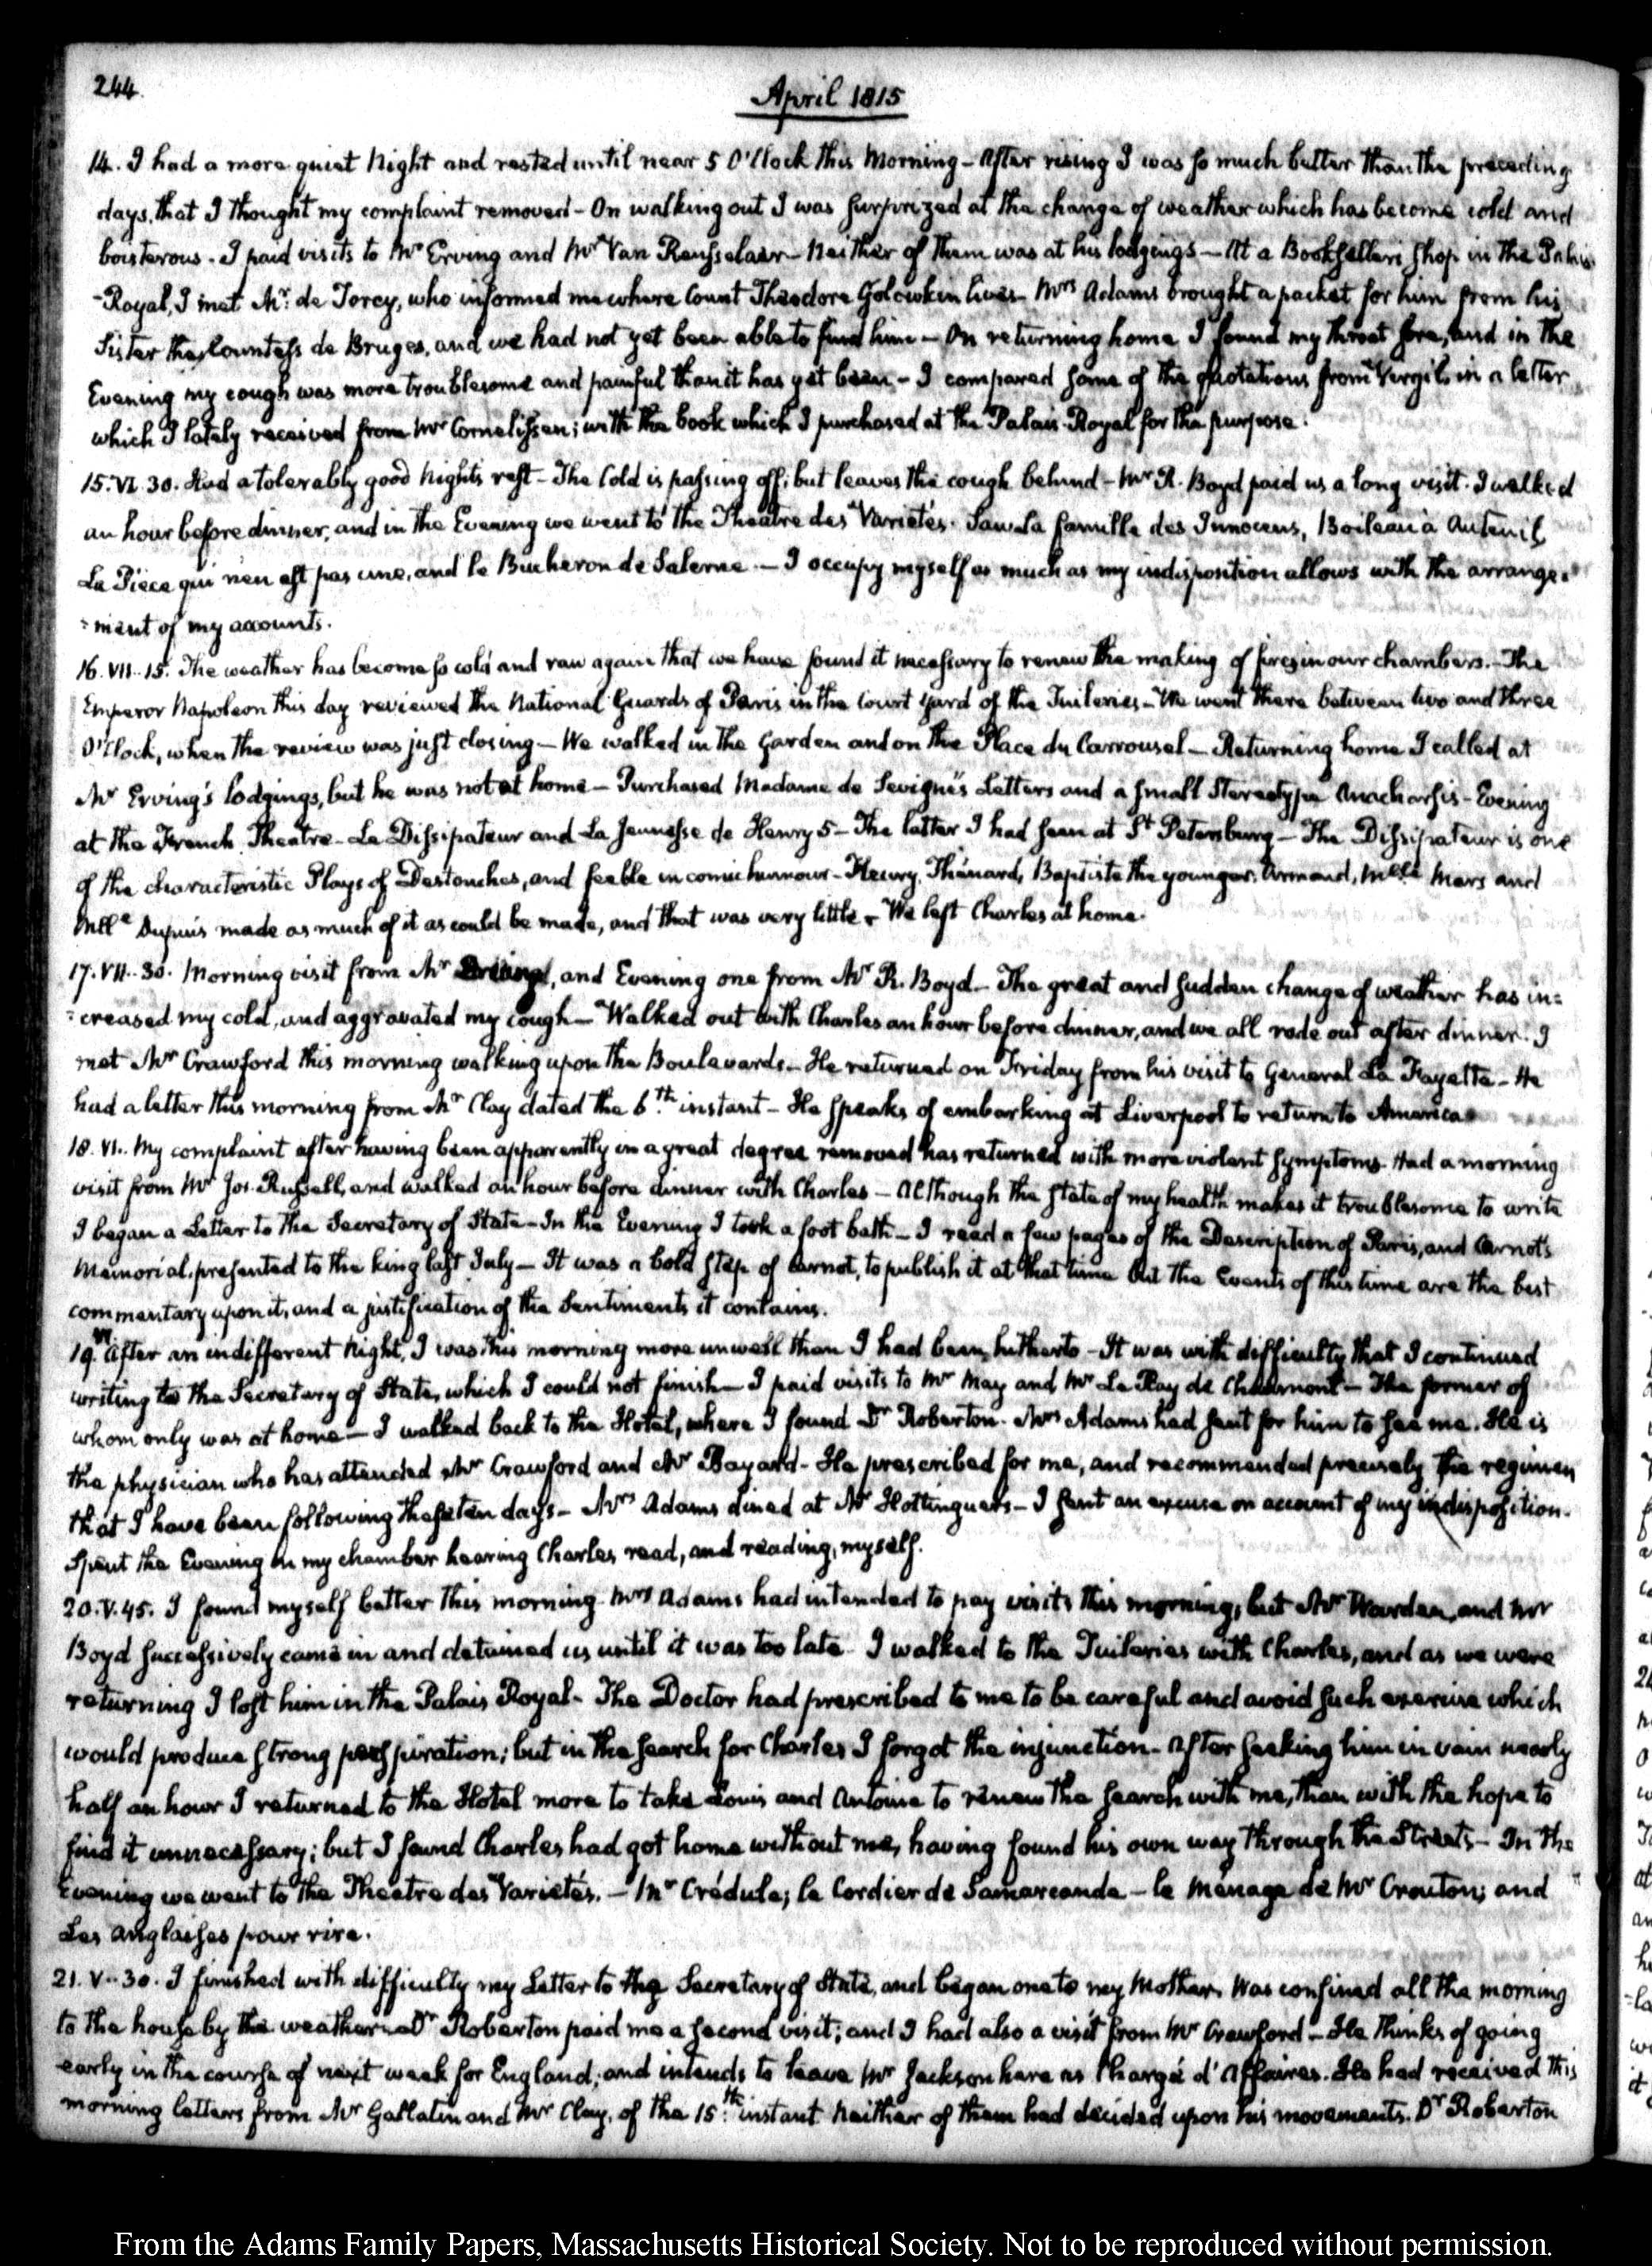 244.
April 1815
14. I had a more quiet Night and rested until near 5 O'Clock this Morning - After rising I was so much better than the preceding
days, that I thought my complaint removed - On walking out I was surprized at the change of weather which has become cold and
boisterous. I paid visits to Mr Erving and Mr Van Rensselaer - Neither of them was at his lodgings - At a Booksellers shop in the Palais
-Royal, I met Mr. de Torcy, who informed me where Count Theodore Golowkin lives - Mrs Adams brought a packet for him from his
Sister the Countess de Bruges, and we had not yet been able to find him - On returning home I found my throat sore, and in the
Evening my cough was more troublesome and painful than it has yet been - I compared some of the quotations from Virgil, in a letter
which I lately received from Mr Cornelissen; with the book which I purchased at the Palais-Royal for the purpose.
15. VI. 30. Had a tolerably good Nights rest - The Cold is passing off; but leaves the cough behind - Mr R. Boyd paid us a long visit. I walked
an hour before dinner, and in the Evening we went to the Theatre des Varietés. Saw La famille des Innocens, Boileau à Auteuil
La Piece qui n'en est pas une, and le Bucheron de Salerne. - I occupy myself as much as my indisposition allows with the arrange=
=ment of my accounts.
16. VII. 15. The weather has become so cold and raw again that we have found it necessary to renew the making of fires in our chambers. - The
Emperor Napoleon this day reviewed the National Guards of Paris in the Court yard of the Tuileries - We went there between two and three
O'Clock, when the review was just closing - We walked in the Garden and on the Place du Carrousel - Returning home I called at
Mr Erving's lodgings, but he was not at home - Purchased Madame de Sevigné's Letters and a small Stereotype Anacharsis - Evening
at the French Theatre - Le Dissipateur and La Jeunesse de Henry 5 - The latter I had seen at St Petersburg - The Dissipateur is one
of the characteristic Plays of Destouches, and feeble in comic humour - Fleury, Thénard, Baptiste the younger, Armand, Mlle Mars and
Mlle Dupuis made as much of it as could be made, and that was very little - We left Charles at home.
17. VII. 30. Morning visit from Mr Erving, and Evening one from Mr R. Boyd - The great and sudden change of weather has in=
=creased my cold, and aggravated my cough - Walked out with Charles an hour before dinner, and we all rode out after dinner. I
met Mr Crawford this morning walking upon the Boulevards - He returned on Friday from his visit to General La Fayette - He
had a letter this morning from Mr Clay dated the 6th. instant - He speaks of embarking at Liverpool to return to America
18. VI. My complaint after having been apparently in a great degree removed has returned with more violent symptoms. Had a morning
visit from Mr Jos. Russell, and walked an hour before dinner with Charles - Although the state of my health makes it troublesome to write
I began a Letter to the Secretary of State - In the Evening I took a foot bath - I read a few pages of the Description of Paris, and Carnot's
Memorial, presented to the king last July - It was a bold step of Carnot, to publish it at that time but the Events of this time are the best
commentary upon it, and a justification of the Sentiments it contains.
19. VI. After an indifferent Night, I was this morning more unwell than I had been, hitherto - It was with difficulty that I continued
writing to the Secretary of State, which I could not finish - I paid visits to Mr May and Mr Le Ray de Chaumont - The former of
whom only was at home - I walked back to the Hotel, where I found Dr Roberton. Mrs Adams had sent for him to see me. He is
the physician who has attended Mr Crawford and Mr Bayard - He prescribed for me, and recommended precisely the regimen
that I have been following these ten days - Mrs Adams dined at Mr Hottinguer's - I sent an excuse on account of my indisposition.
Spent the Evening in my chamber hearing Charles read, and reading, myself.
20. V. 45. I found myself better this morning. Mrs Adams had intended to pay visits this morning, but Mr Warden, and Mr
Boyd successively came in and detained us until it was too late. I walked to the Tuileries with Charles, and as we were
returning I lost him in the Palais Royal - The Doctor had prescribed to me to be careful and avoid such exercise which
would produce strong perspiration; but in the search for Charles I forgot the injunction - After seeking him in vain nearly
half an hour I returned to the Hotel more to take Louis and Antoine to renew the search with me, than with the hope to
find it unnecessary; but I found Charles had got home without me, having found his own way through the Streets - In the
Evening we went to the Theatre des Varietés. - Mr Crédule; le Cordier de Samarcande - le Menage de Mr Crouton; and
Les Anglaises pour rire.
21. V. 30. I finished with difficulty my Letter to the Secretary of State, and began one to my Mother. Was confined all the morning
to the house by the weather. Dr Roberton paid me a second visit; and I had also a visit from Mr Crawford - He thinks of going
early in the course of next week for England; and intends to leave Mr Jackson here as Chargé d'Affaires. He had received this
morning letters from Mr Gallatin and Mr Clay, of the 15th. instant. Neither of them had decided upon his movements. Dr Roberton
From the Adams Family Papers, Massachusetts Historical Society. Not to be reproduced without permission.